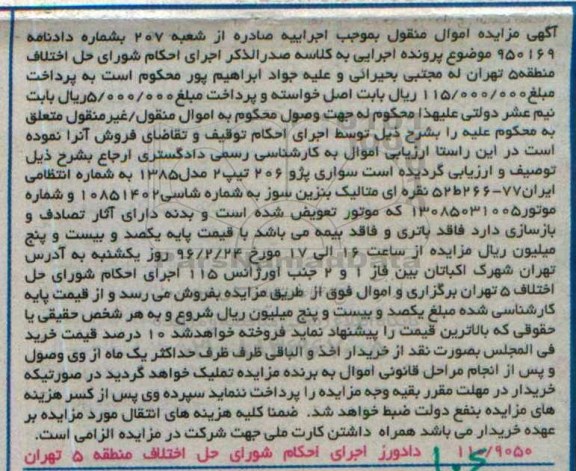 آگهی مزایده اموال منقول بموجب اجراییه صادره از شعبه ۲۰۷ بشماره دادنامه
۹۵۰۱۶۹ موضوع پرونده اجرایی به کلاسه صدرالذکر اجرای احکام شورای حل اختلاف
منطقه۵ تهران له مجتبی بحیرائی و علیه جواد ابراهیم پور محکوم است به پرداخت
مبلغ۱۱۵/۰۰۰/۰۰۰ ریال بابت اصل خواسته و پرداخت مبلغ۵/۰۰۰/۰۰۰ریال بابت
نیم عشر دولتی علیهذا محکوم له جهت وصول محکوم به اموال منقول/غیرمنقول متعلق
به محکوم علیه را بشرح ذیل توسط اجرای احکام توقیف و تقاضای فروش آنرا نموده
است در این راستا ارزیابی اموال به کارشناسی رسمی دادگستری ارجاع بشرح ذیل
توصیف و ارزیابی گردیده است سواری پژو ۲۰۶ تیپ۲ مدل۱۳۸۵ به شماره انتظامی
ایران۷۷-۲۶۶ط۵۲ نقره ای متالیک بنزین سوز به شماره شاسی۱۰۸۵۱۴۰۲ و شماره
موتور۱۳۰۸۵۰۳۱۰۰۵ که موتور تعویض شده است و بدنه دارای آثار تصادف و
بازسازی دارد فاقد باتری و فاقد بیمه می باشد با قیمت پایه یکصد و بیست و پنج
میلیون ریال مزایده از ساعت ۱۶ الی ۱۷ مورخ ۹۶/۲/۲۴ روز یکشنبه به آدرس
تهران شهرک اکباتان بین فاز ۱ و ۲ جنب اورژانس ۱۱۵ اجرای احکام شورای حل
اختلاف ۵ تهران برگزاری و اموال فوق از طریق مزایده بفروش می رسد و از قیمت پایه
کارشناسی شده مبلغ یکصد و بیست و پنج میلیون ریال شروع و به هر شخص حقیقی یا
حقوقی که بالاترین قیمت را پیشنهاد نماید فروخته خواهدشد ۱۰ درصد قیمت خرید
فی المجلس بصورت نقد از خریدار اخذ و الباقی ظرف ظرف حداکثر یک ماه از وی وصول
و پس از انجام مراحل قانونی اموال به برنده مزایده تملیک خواهد گردید در صورتیکه
خریدار در مهلت مقرر بقیه وجه مزایده را پرداخت ننماید سپرده وی پس از کسر هزینه
های مزایده بنفع دولت ضبط خواهد شد. ضمنا کلیه هزینه های انتقال مورد مزایده بر
عهده خریدار می باشد همراه داشتن کارت ملی جهت شرکت در مزایده الزامی است.
۱۱۰/۹۰۵۰ دادورز اجرای احکام شورای حل اختلاف منطقه ۵ تهران